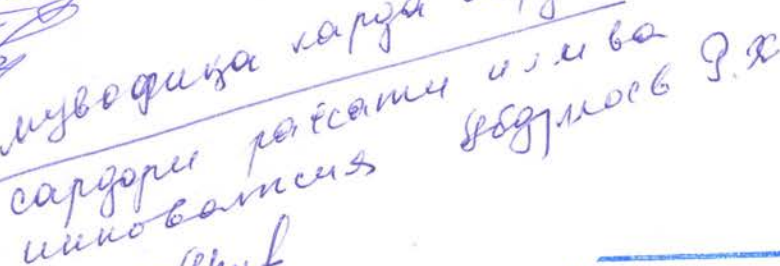 мувофиқа карда
сардори раёсати илм ва
инноватсия Убдуллоев Р.Х